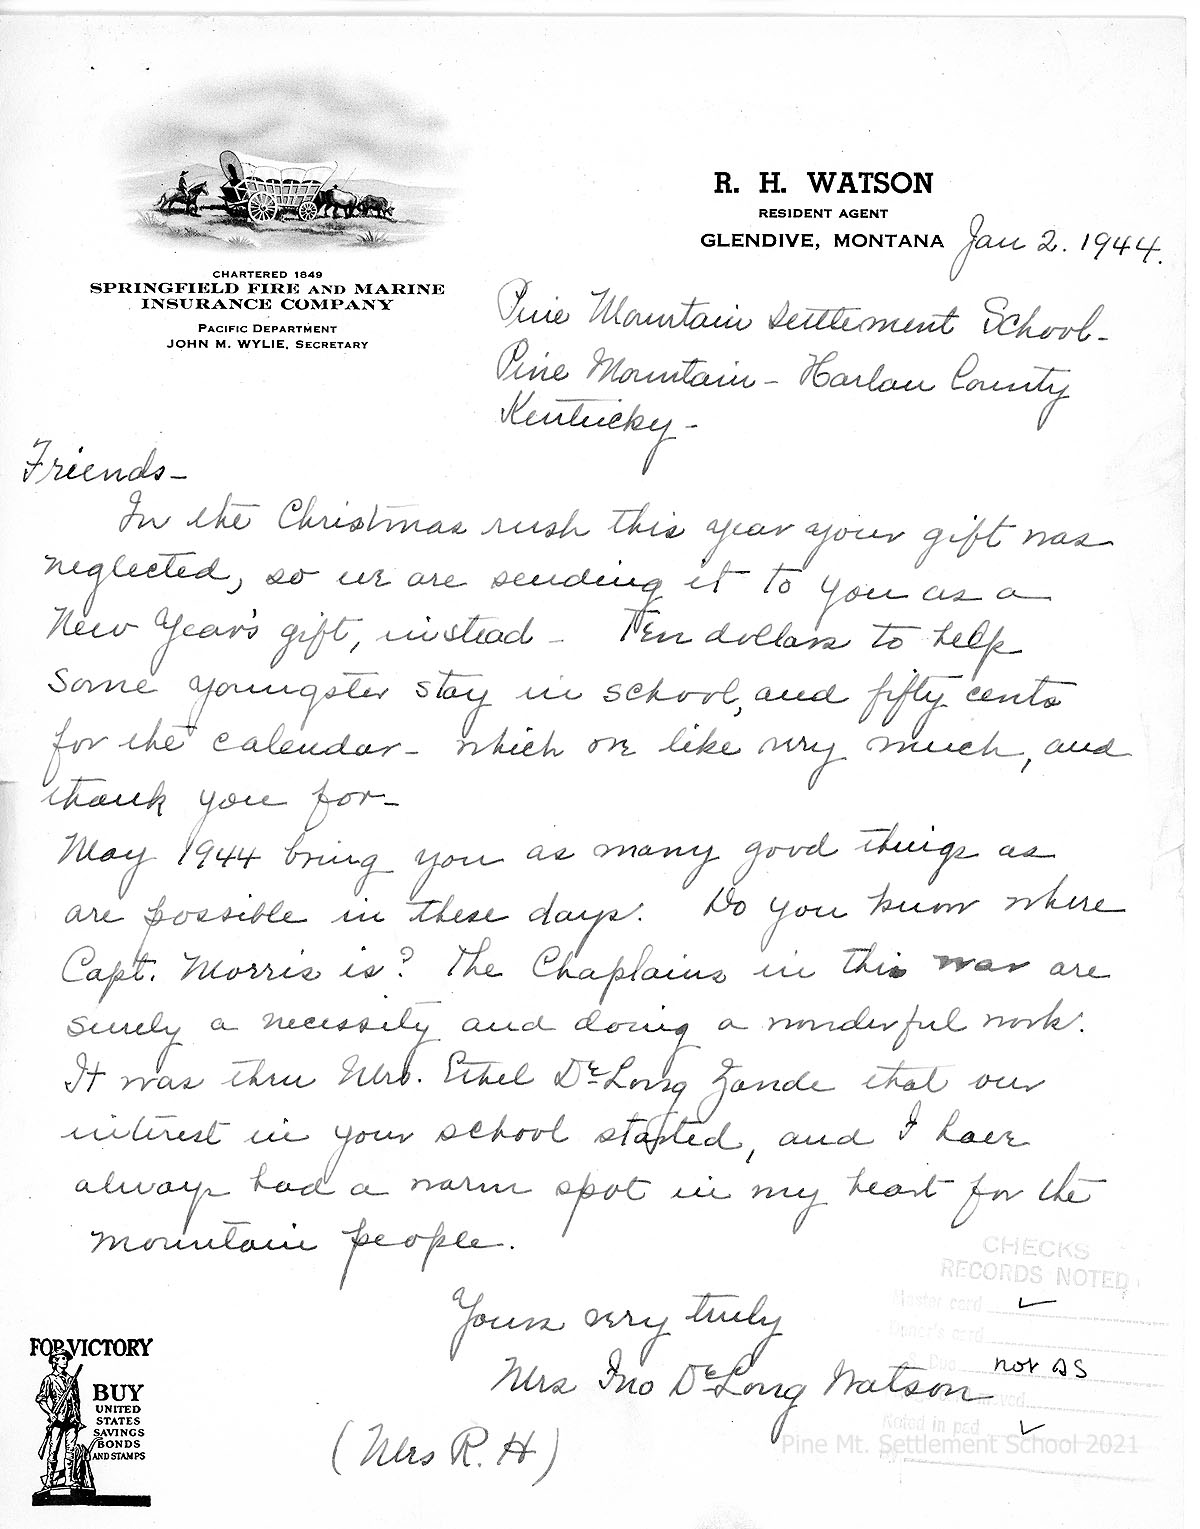 R. H. WATSON
RESIDENT AGENT
GLENDIVE, MONTANA Jan 2. 1944.
CHARTERED 1849
SPRINGFIELD FIRE AND MARINE
INSURANCE COMPANY
PACIFIC DEPARTMENT
JOHN M. WYLIE, SECRETARY
Pine Mountain Settlement School-
Pine Mountain - Harlan County
Kentucky-
Friends-
In the Christmas rush this year your gift was
neglected, so we are sending it to you as a
New Year's gift, instead - Ten dollars to help
some youngster stay in school, and fifty cents
for the calendar- which we like very much, and
thank you for-
May 1944 bring you as many good things as
are possible in these days. Do you know where
Capt. Morris is? The Chaplains in this war are
surely a necessity and doing a wonderful work.
It was thru Mrs. Ethel DeLong Zande that our
interest in your school started, and I have
always had a warm spot in my heart for the
mountain people.
Yours very truly
Mrs Ino DeLong Watson
(Mrs R. H)
CHECKS
RECORDS NOTED
Master card ✓
Donor's card
not DS
Noted in pad ✓
FOR VICTORY
BUY
UNITED
STATES
SAVINGS
BONDS
AND STAMPS
Pine Mt. Settlement School 2021